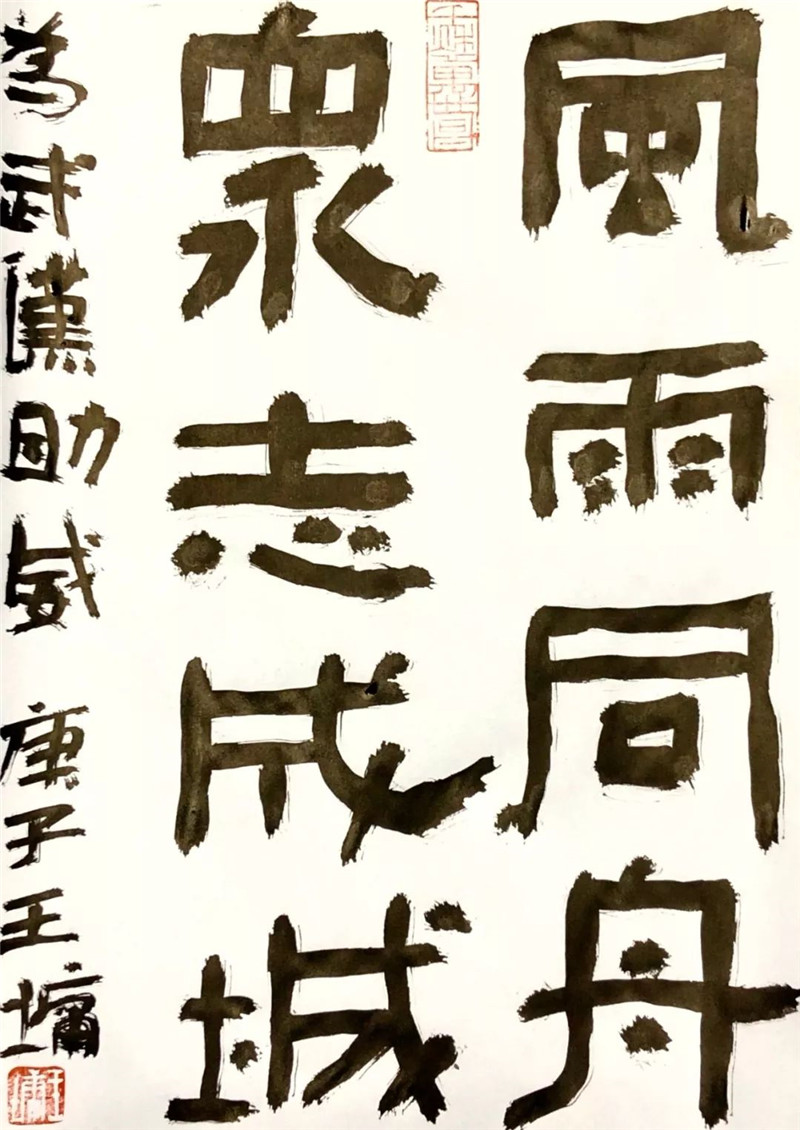 風雨同舟
眾志成城
為武漢助威 庚子王墉